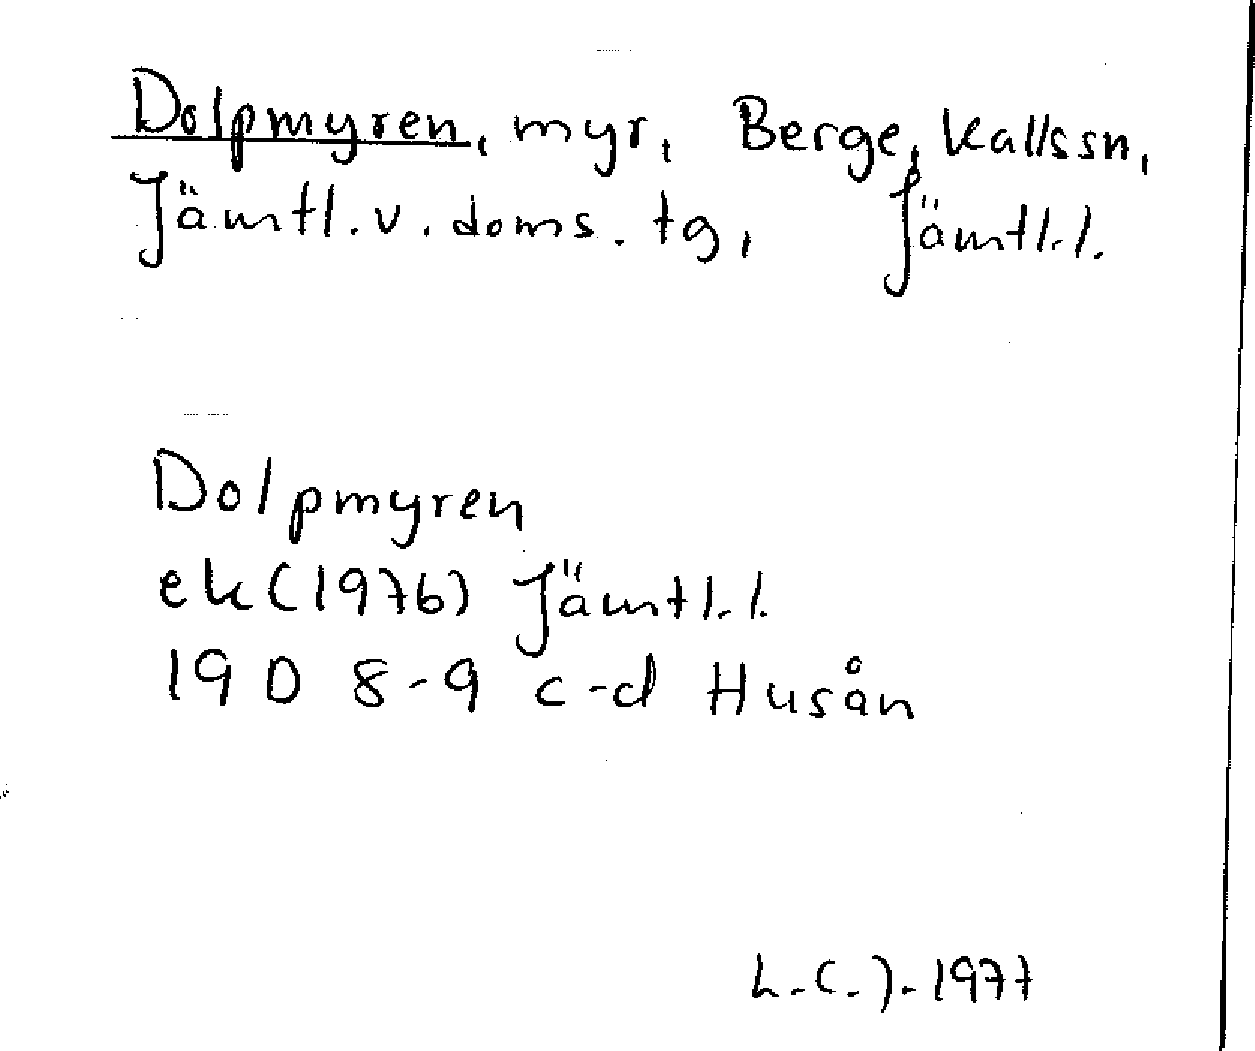 Dolpmyren, myr, Berge, Kallssn,
Jämtl.v.doms.tg, Jämtl.l.
Dolpmyren
ek(1976) Jämtl.l.
19 D 8-9 c-d Husån
L.C.J. 1977